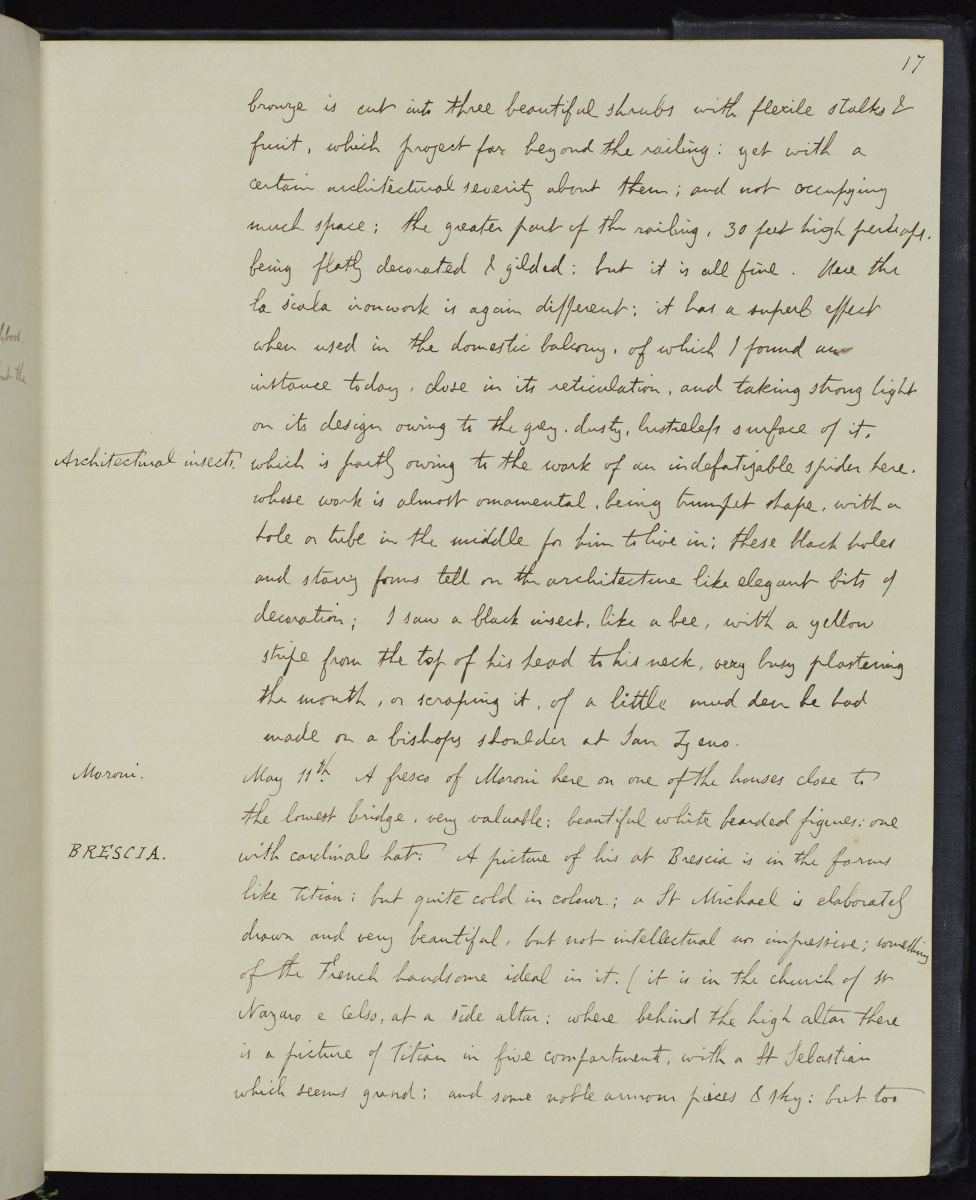 17
bronze is cut into three beautiful shrubs with flexile stalks &
fruit, which project far beyond the railing: yet with a
certain architectural severity about them; and not occupying
much space; the greater part of the railing, 30 feet high perhaps.
being flatly decorated & gilded: but it is all fine. Here the
la scala ironwork is again different; it has a superb effect
when used in the domestic balcony, of which I found an
instance today, close in its reticulation, and taking strong light
on its design owing to the grey, dusty, lustreless surface of it,
Architectural insects. which is partly owing to the work of an indefatigable spider here.
whose work is almost ornamental, being trumpet shape, with a
hole or tube in the middle for him to live in; these black holes
and starry forms tell on the architecture like elegant bits of
decoration; I saw a black insect, like a bee, with a yellow
stripe from the top of his head to his neck, very busy plastering
the mouth, or scraping it, of a little mud den he had
made on a bishops shoulder at San Zeno.
Moroni. May 11th. A fresco of Moroni here on one of the houses close to
the lowest bridge, very valuable; beautiful white bearded figures; one
BRESCIA. with cardinals hat: A picture of his at Brescia is in the forms
like Titian; but quite cold in colour.; a St Michael is elaborately
drawn and very beautiful, but not intellectual nor impressive; something
of the French handsome ideal in it. (it is in the church of St
Nazaro e Celso, at a side altar; where behind the high altar there
is a picture of Titian in five compartment, with a St Sebastian
which seems grand; and some noble armour pieces & sky: but too